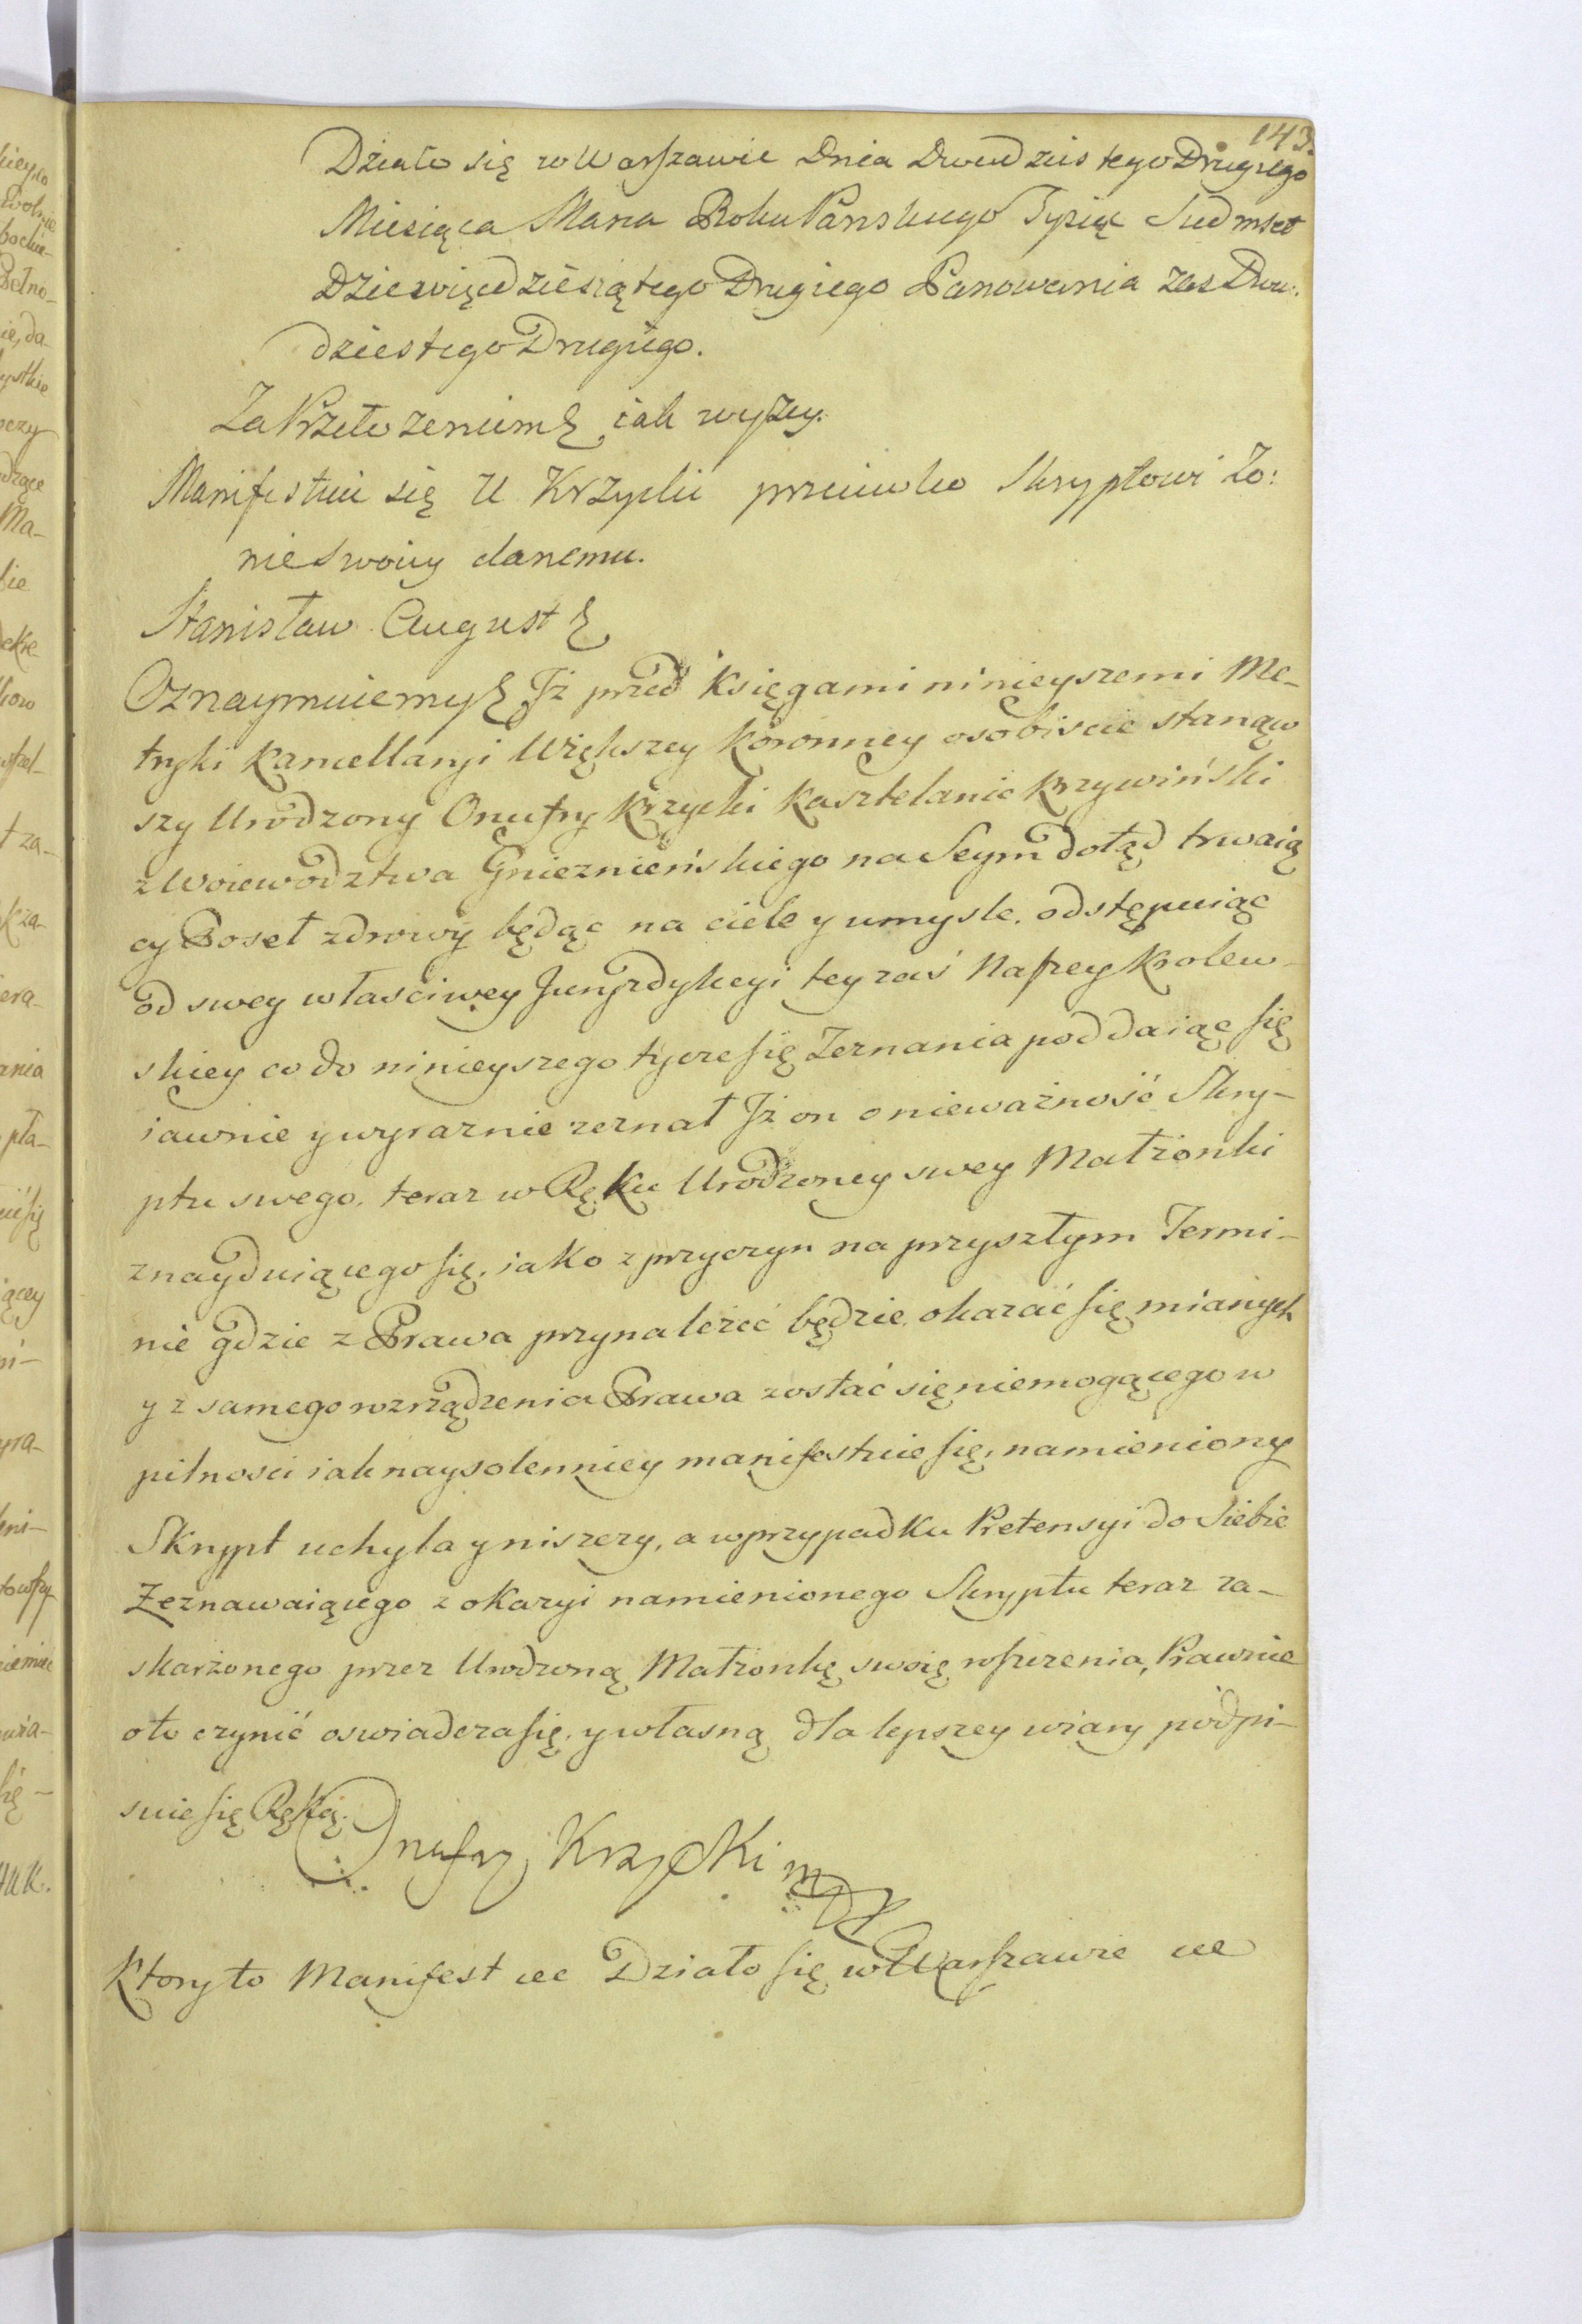 143.
Działo się w Warszawie Dnia Dwudziestego Drugiego
Miesiąca Marca Roku Pańskiego Tysiąc Siedmset
Dziewięćdziesiątego Drugiego Panowania zaś Dwu:
dziestego Drugiego.
Za Przełożeniem & iak wyżey.
Manifestuie się U Krzycki przeciwko Skryptowi Żo:
nie swoiey danemu.
Stanisław August &
Oznaymuiemy & Jż przed Księgami ninieyszemi Me-
tryki Kancellaryi Większey Koronney osobiscie stanąw
szy Urodzony Onufry Krzycki Kasztelanic Krzywiński
z Woiewodztwa Gnieznieńskiego na Seym dotąd trwaią
cy Poseł zdrowy będąc na ciele y umysle. odstępuiąc
od swey właściwey Juryzdykcyi tey zaś Naszey Krolew-
skiey co do ninieyszego tycze się Zeznania poddaiąc się
iawnie y wyraznie zeznał Jż on o nieważność Skry-
ptu swego. teraz w Ręku Urodzoney swey Małżonki
znayduiącego się. iako z przyczyn na przyszłym Termi-
nie gdzie z Prawa przynależeć będzie. okazać się mianych
y z samego rozrządzenia Prawa zostać się niemogącego w
pilnosci iak naysolenniey manifestuie się, namieniony
Skrypt uchyla y niszczy, a w przypadku Pretensyi do Siebie
Zeznawaiącego z okazyi namienionego Skryptu teraz za-
skarżonego przez Urodzoną Małżonkę swoię roszczenia, Prawnie
oto czynić oswiadcza się. y własną dla lepszey wiary podpi-
suie się Ręką.
Onufry Krzycki
Ktory to Manifest etc Działo się w Warszawie etc